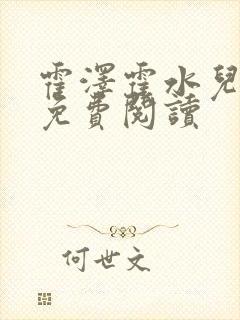 霍澤霍水兒
免費閱讀
何世文